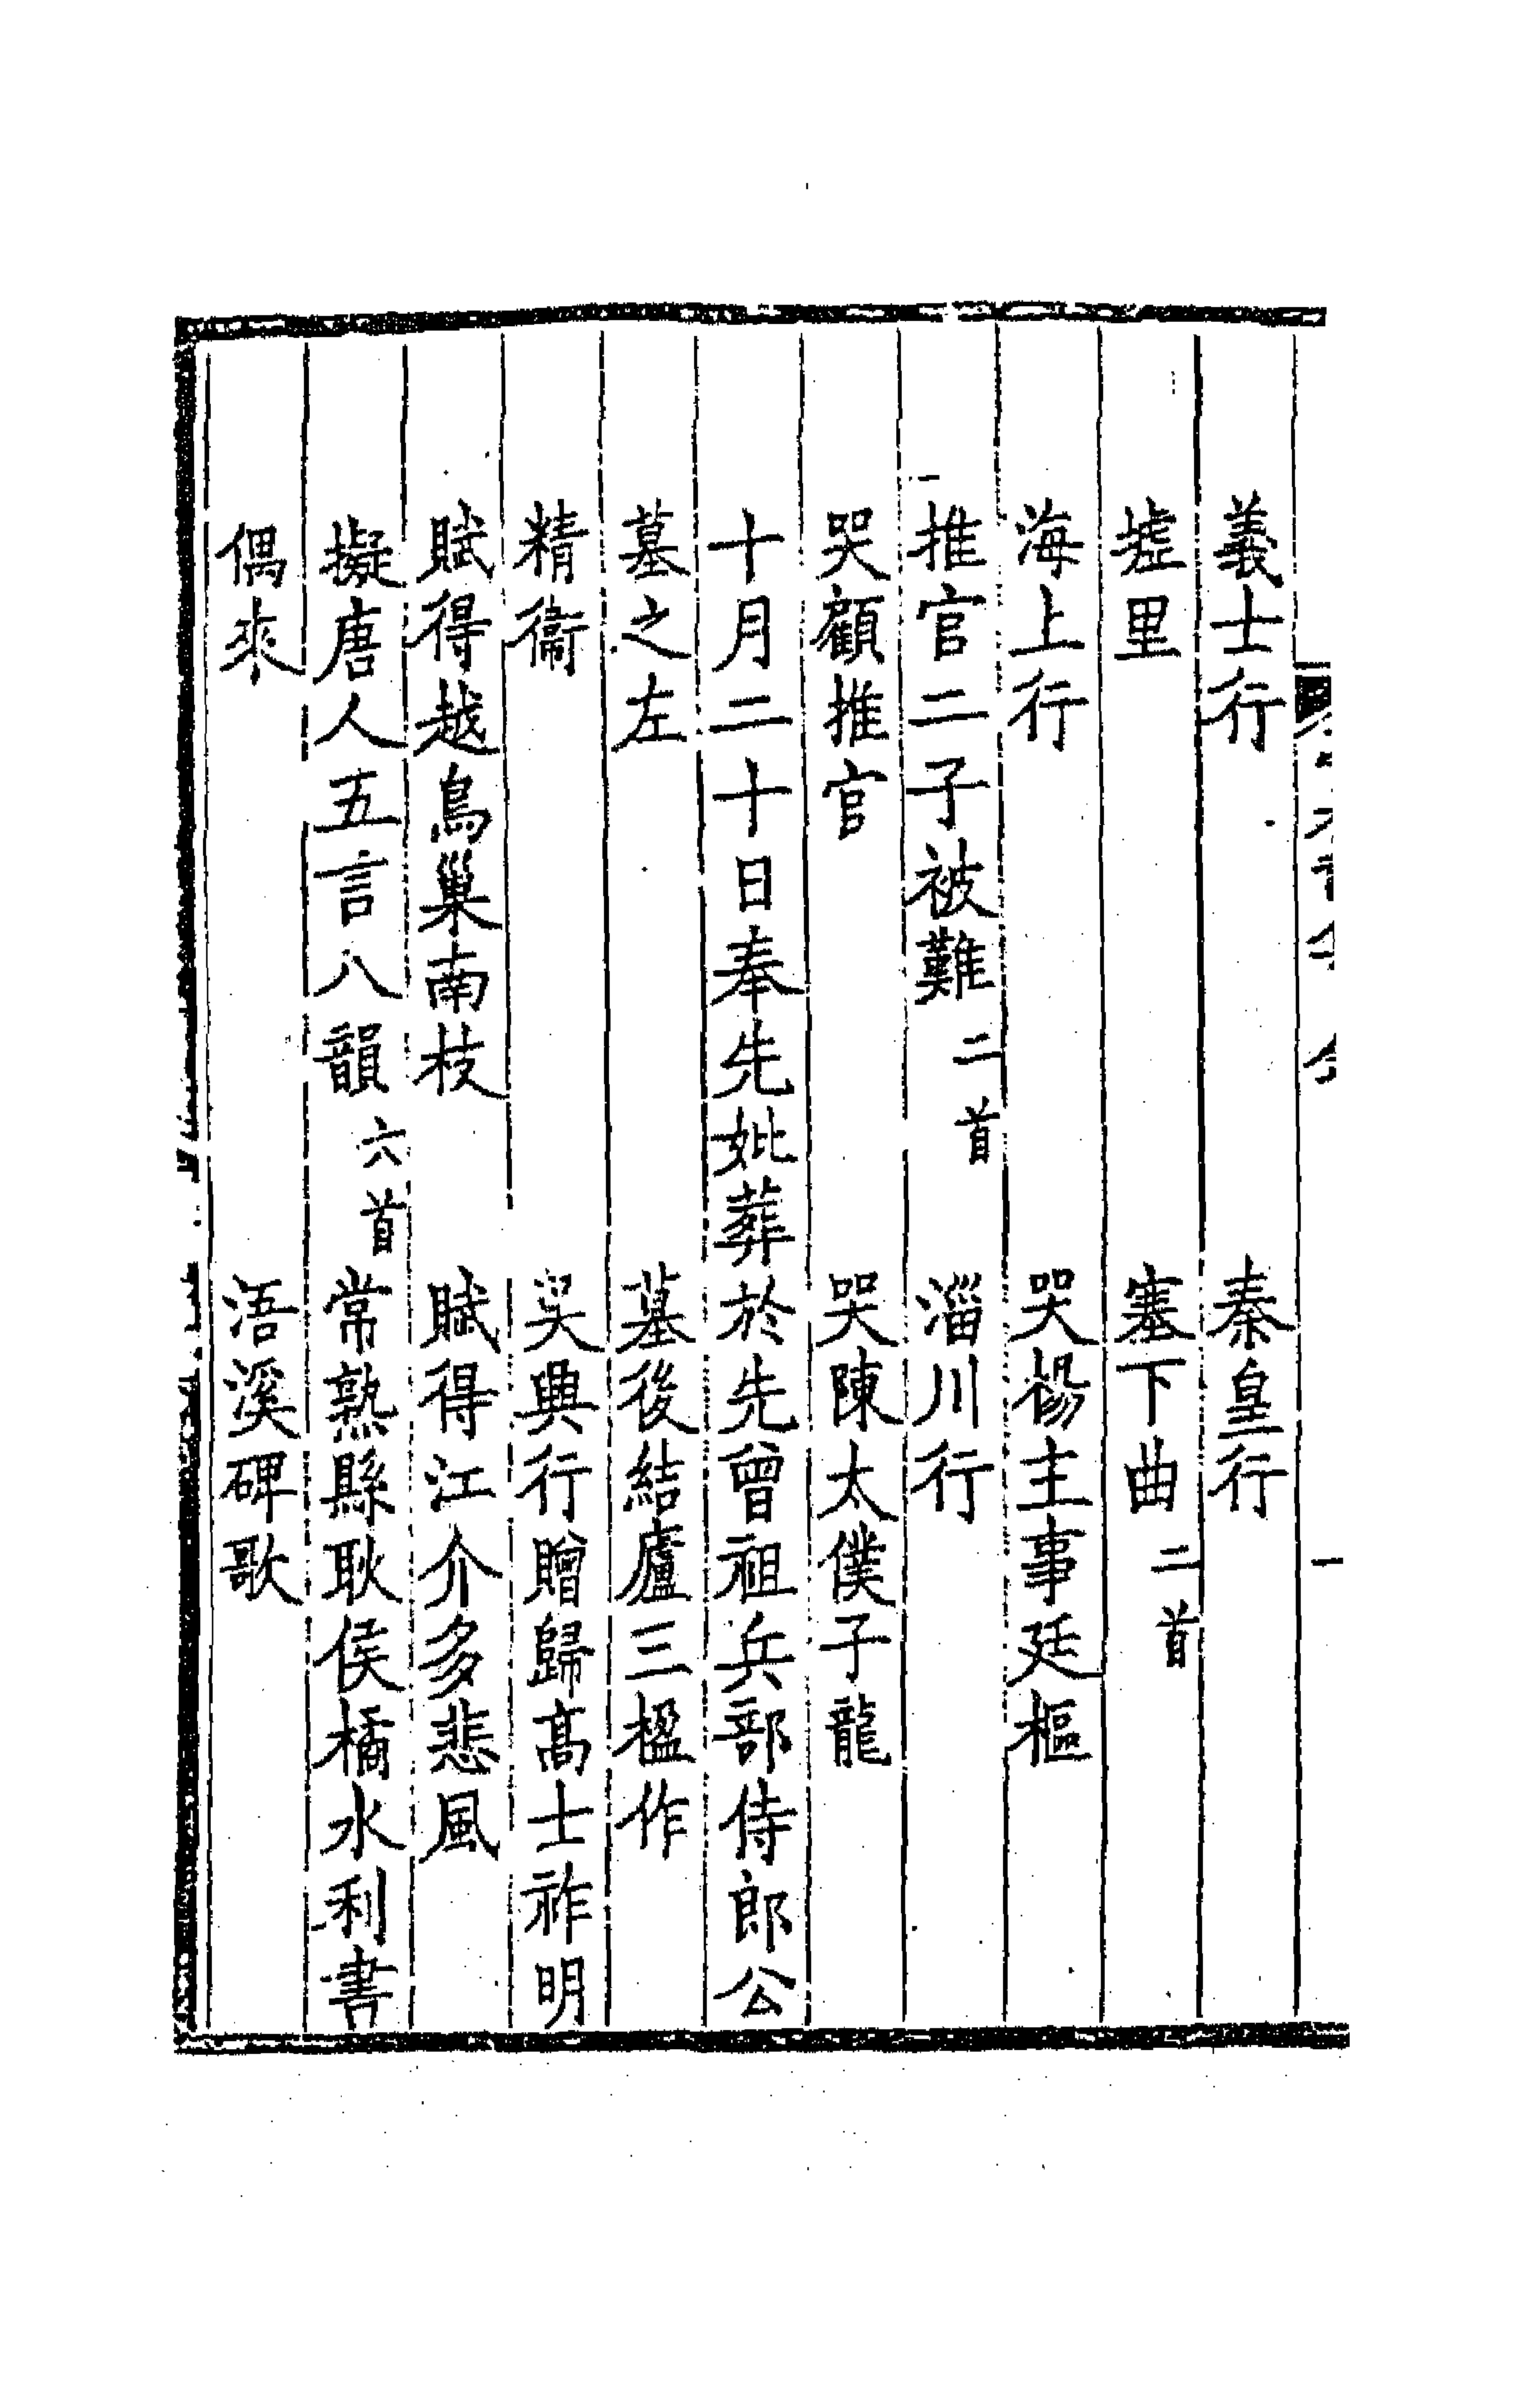 義士行　秦皇行
墟里　塞下曲二首
海上行　哭楊主事廷樞
推官二子被難二首　淄川行
哭顧推官　哭陳太僕子龍
十月二十日奉先妣葬於先曾祖兵部侍郎公
墓之左　墓後結廬三楹作
精衞　吳興行贈歸高士祚明
賦得越鳥巢南枝　賦得江介多悲風
擬唐人五言八韻六首　常熟縣耿侯橘水利書
偶來　浯溪碑歌